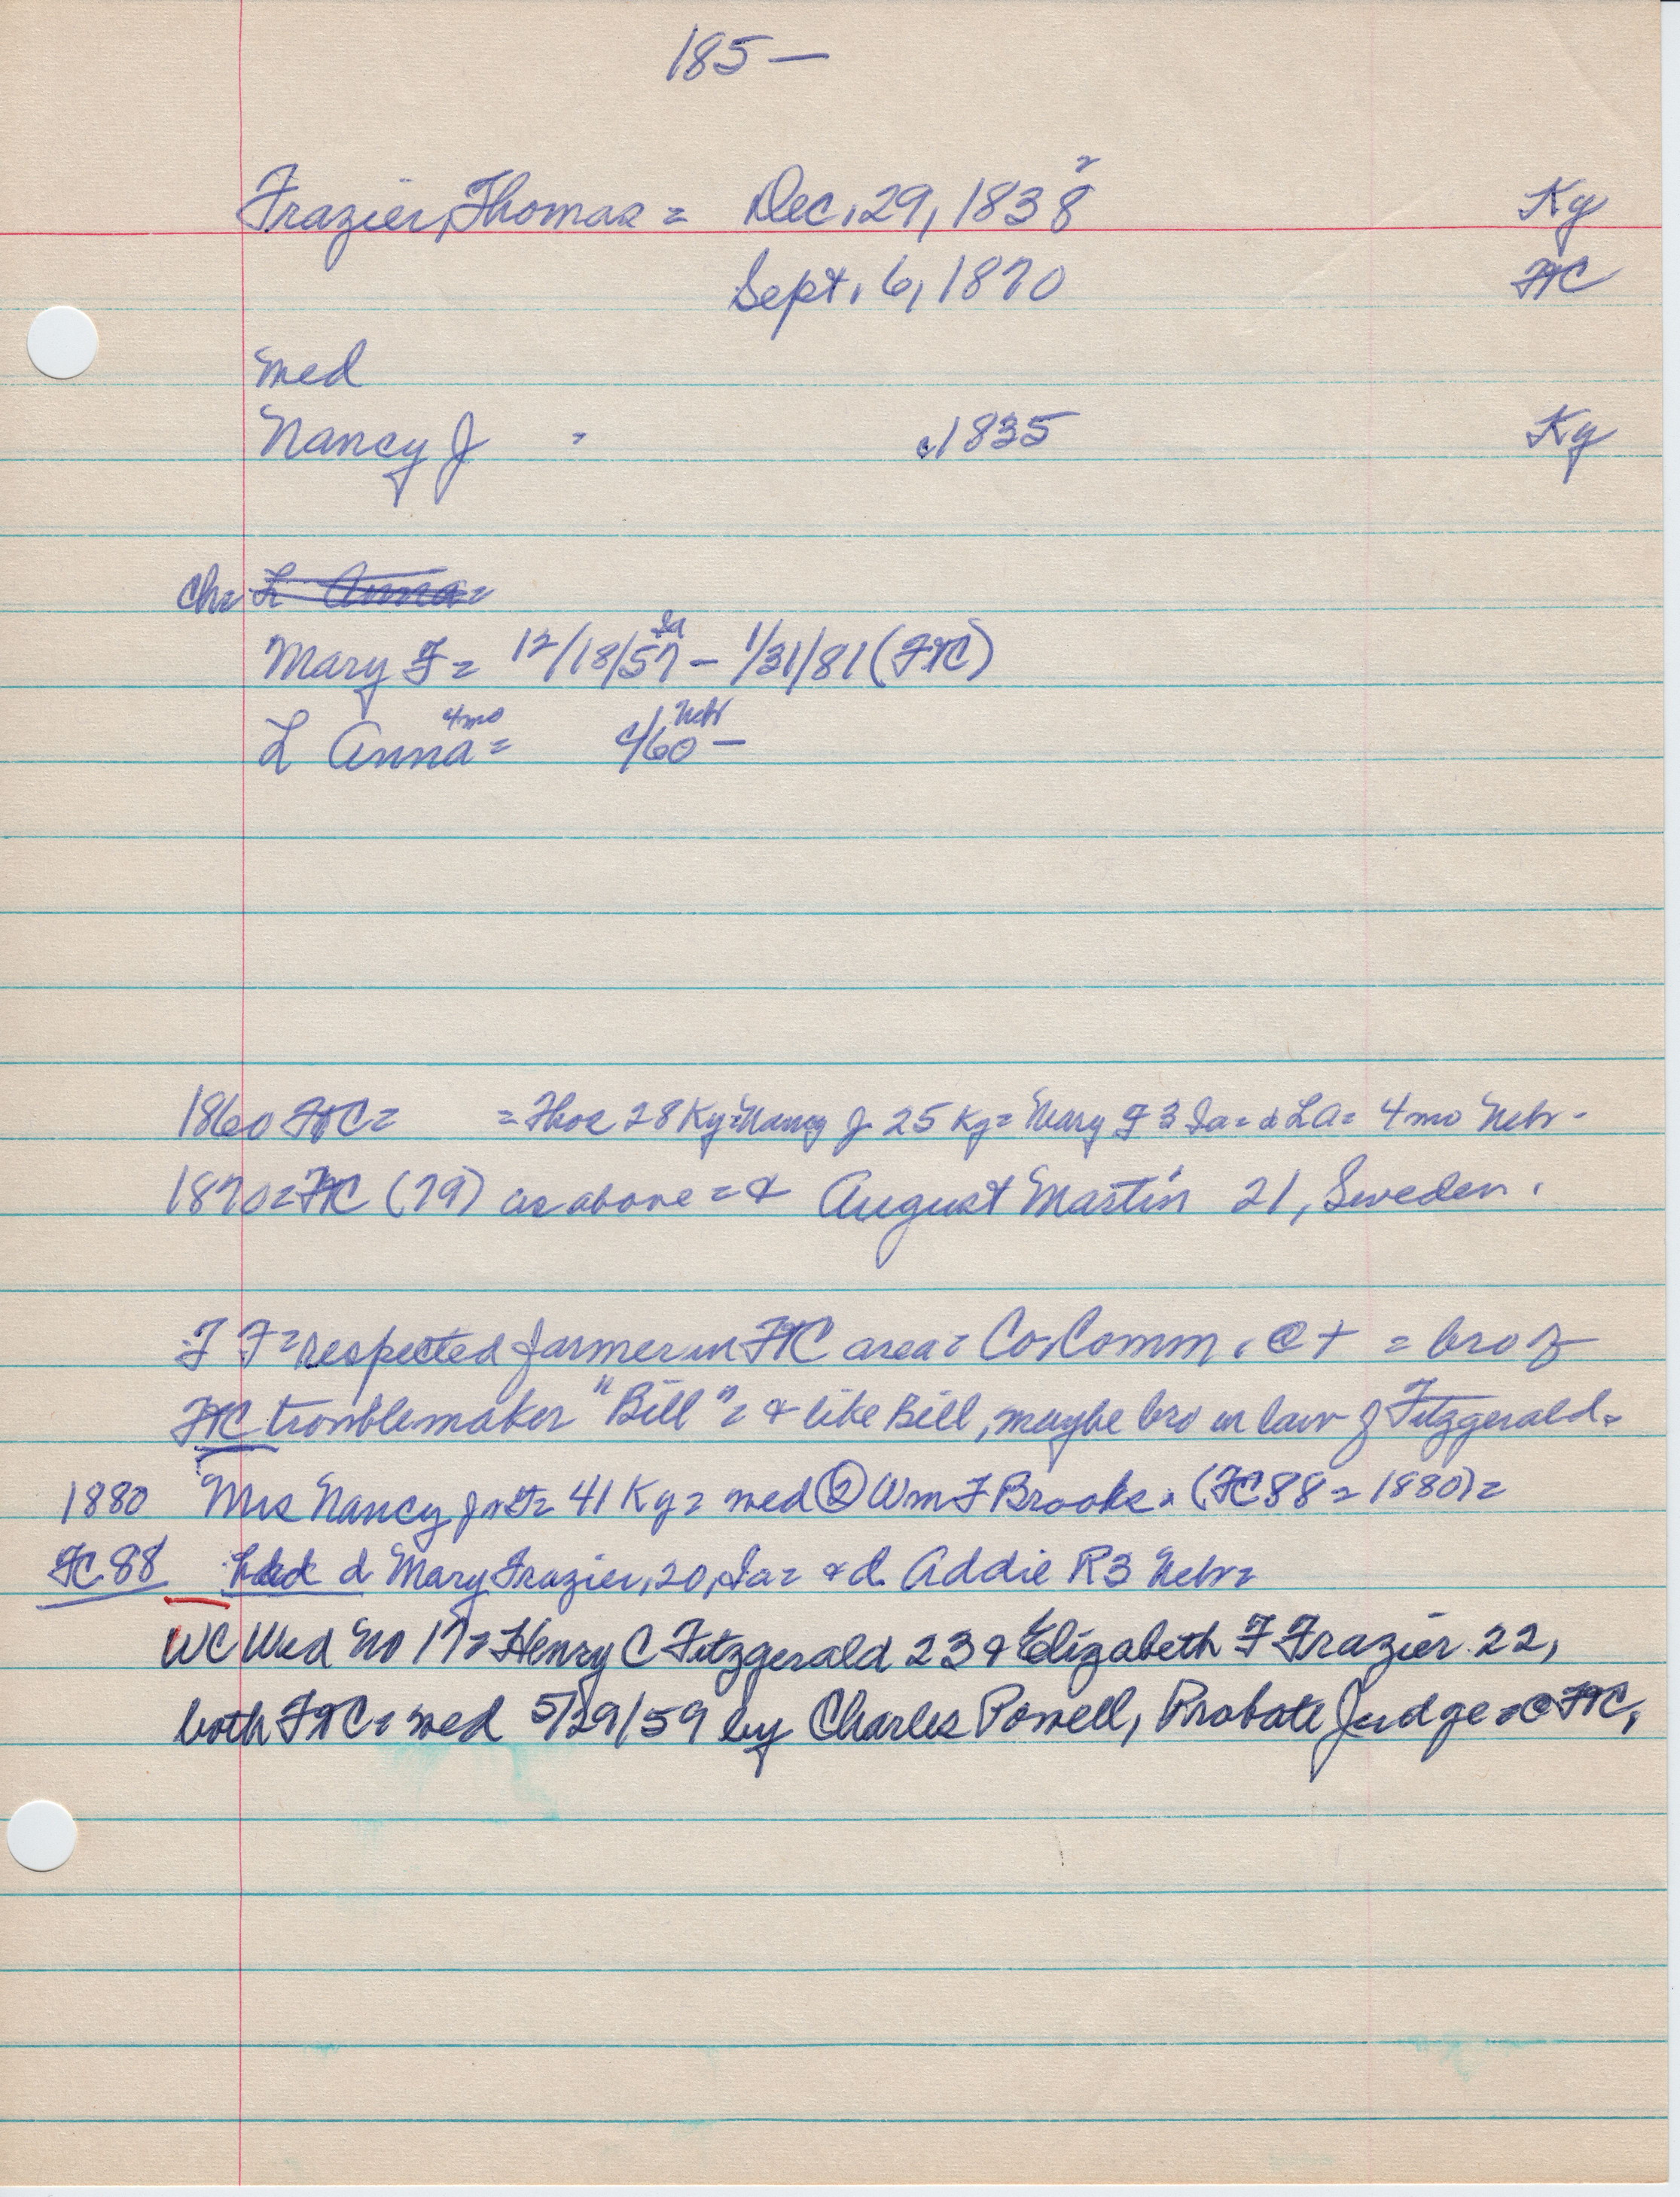 185—
Frazier, Thomas = Dec. 29, 1838 2 Ky
Sept. 6, 1870 FtC
med
Nancy J = c1835 Ky
ch= L Anna=
Mary F= 12/18/57 Ia – 1/31/81 (FtC)
L Anna 4mo = c/60 Nebr –
1860 FtC= = Thos 28 Ky= Nancy J 25 Ky= Mary F 3 Ia= & LA= 4 mo Nebr-
1870=FtC (79) as above = & August Martin 21, Sweden.
T F= respected farmer in FtC area= Co Comm. = bro of
FtC troublemaker "Bill"= & like Bill, maybe bro in law of Fitzgerald.
1880 Mrs Nancy = 41 Ky= med ② Wm F Brooks. (FC 88=1880)=
FC 88 d Mary Frazier, 20, Ia= & d. Addie R 3 Nebr=
WC Wed No 17= Henry C Fitzgerald 23 & Elizabeth F Frazier 22,
both FtC= med 5/29/59 by Charles Powell, Probate Judge @ FtC,